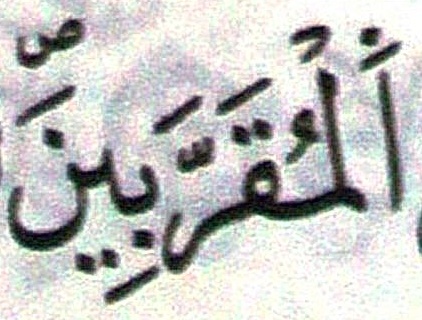 اَ۬لْمُقَرَّبِينَۖ